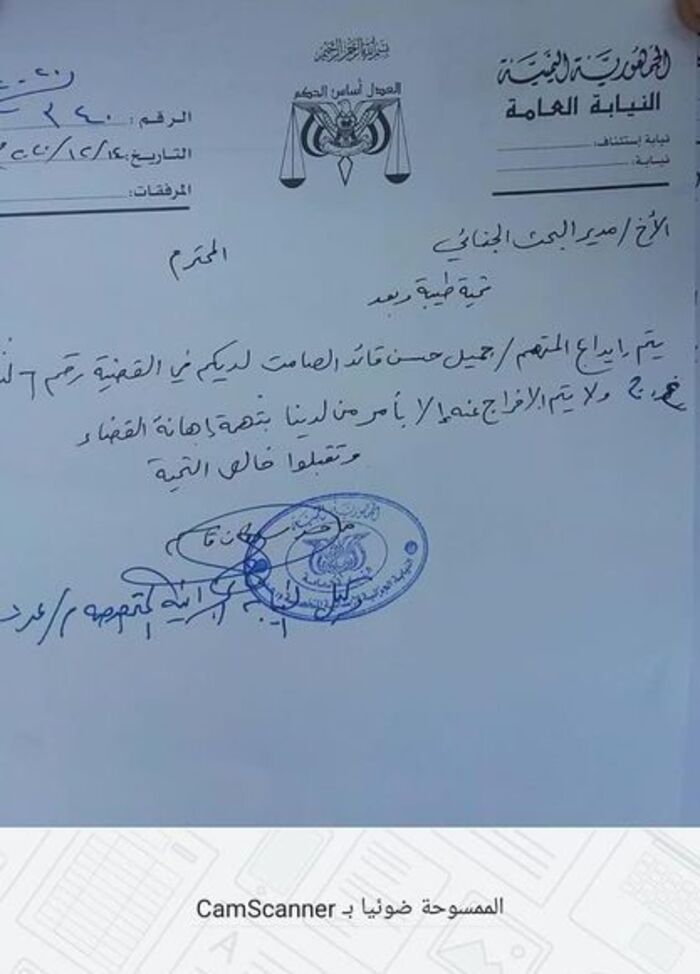 بسم الله الرحمن الرحيم
الجمهورية اليمنية
النيابة العامة
نيابة إستئناف:
نيابة:
العدل أساس الحكم
الرقم: ٣٤٠
التاريخ: ١٤/١٢/٢٠٢٠م
المرفقات:
الأخ/مدير البحث الجنائي
المحترم
تحية طيبة وبعد
يتم إيداع المتهم/جميل حسن قائد الصامت لديكم في القضية رقم ٦
ولا يتم الافراج عنه إلا بأمر من لدينا بتهمة إهانة القضاء
وتقبلوا خالص التحية
وكيل النيابة الجزائية المتخصصة م/عدن
الممسوحة ضوئيا بـ CamScanner